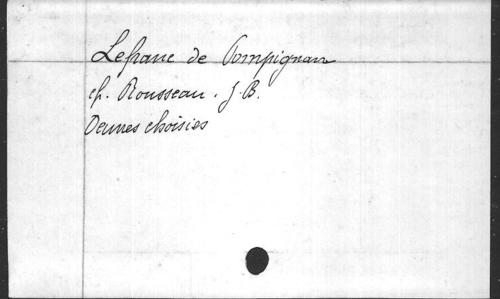 Lefranc de Pompignan
cf. Rousseau. J. B.
Oeuvres choisies